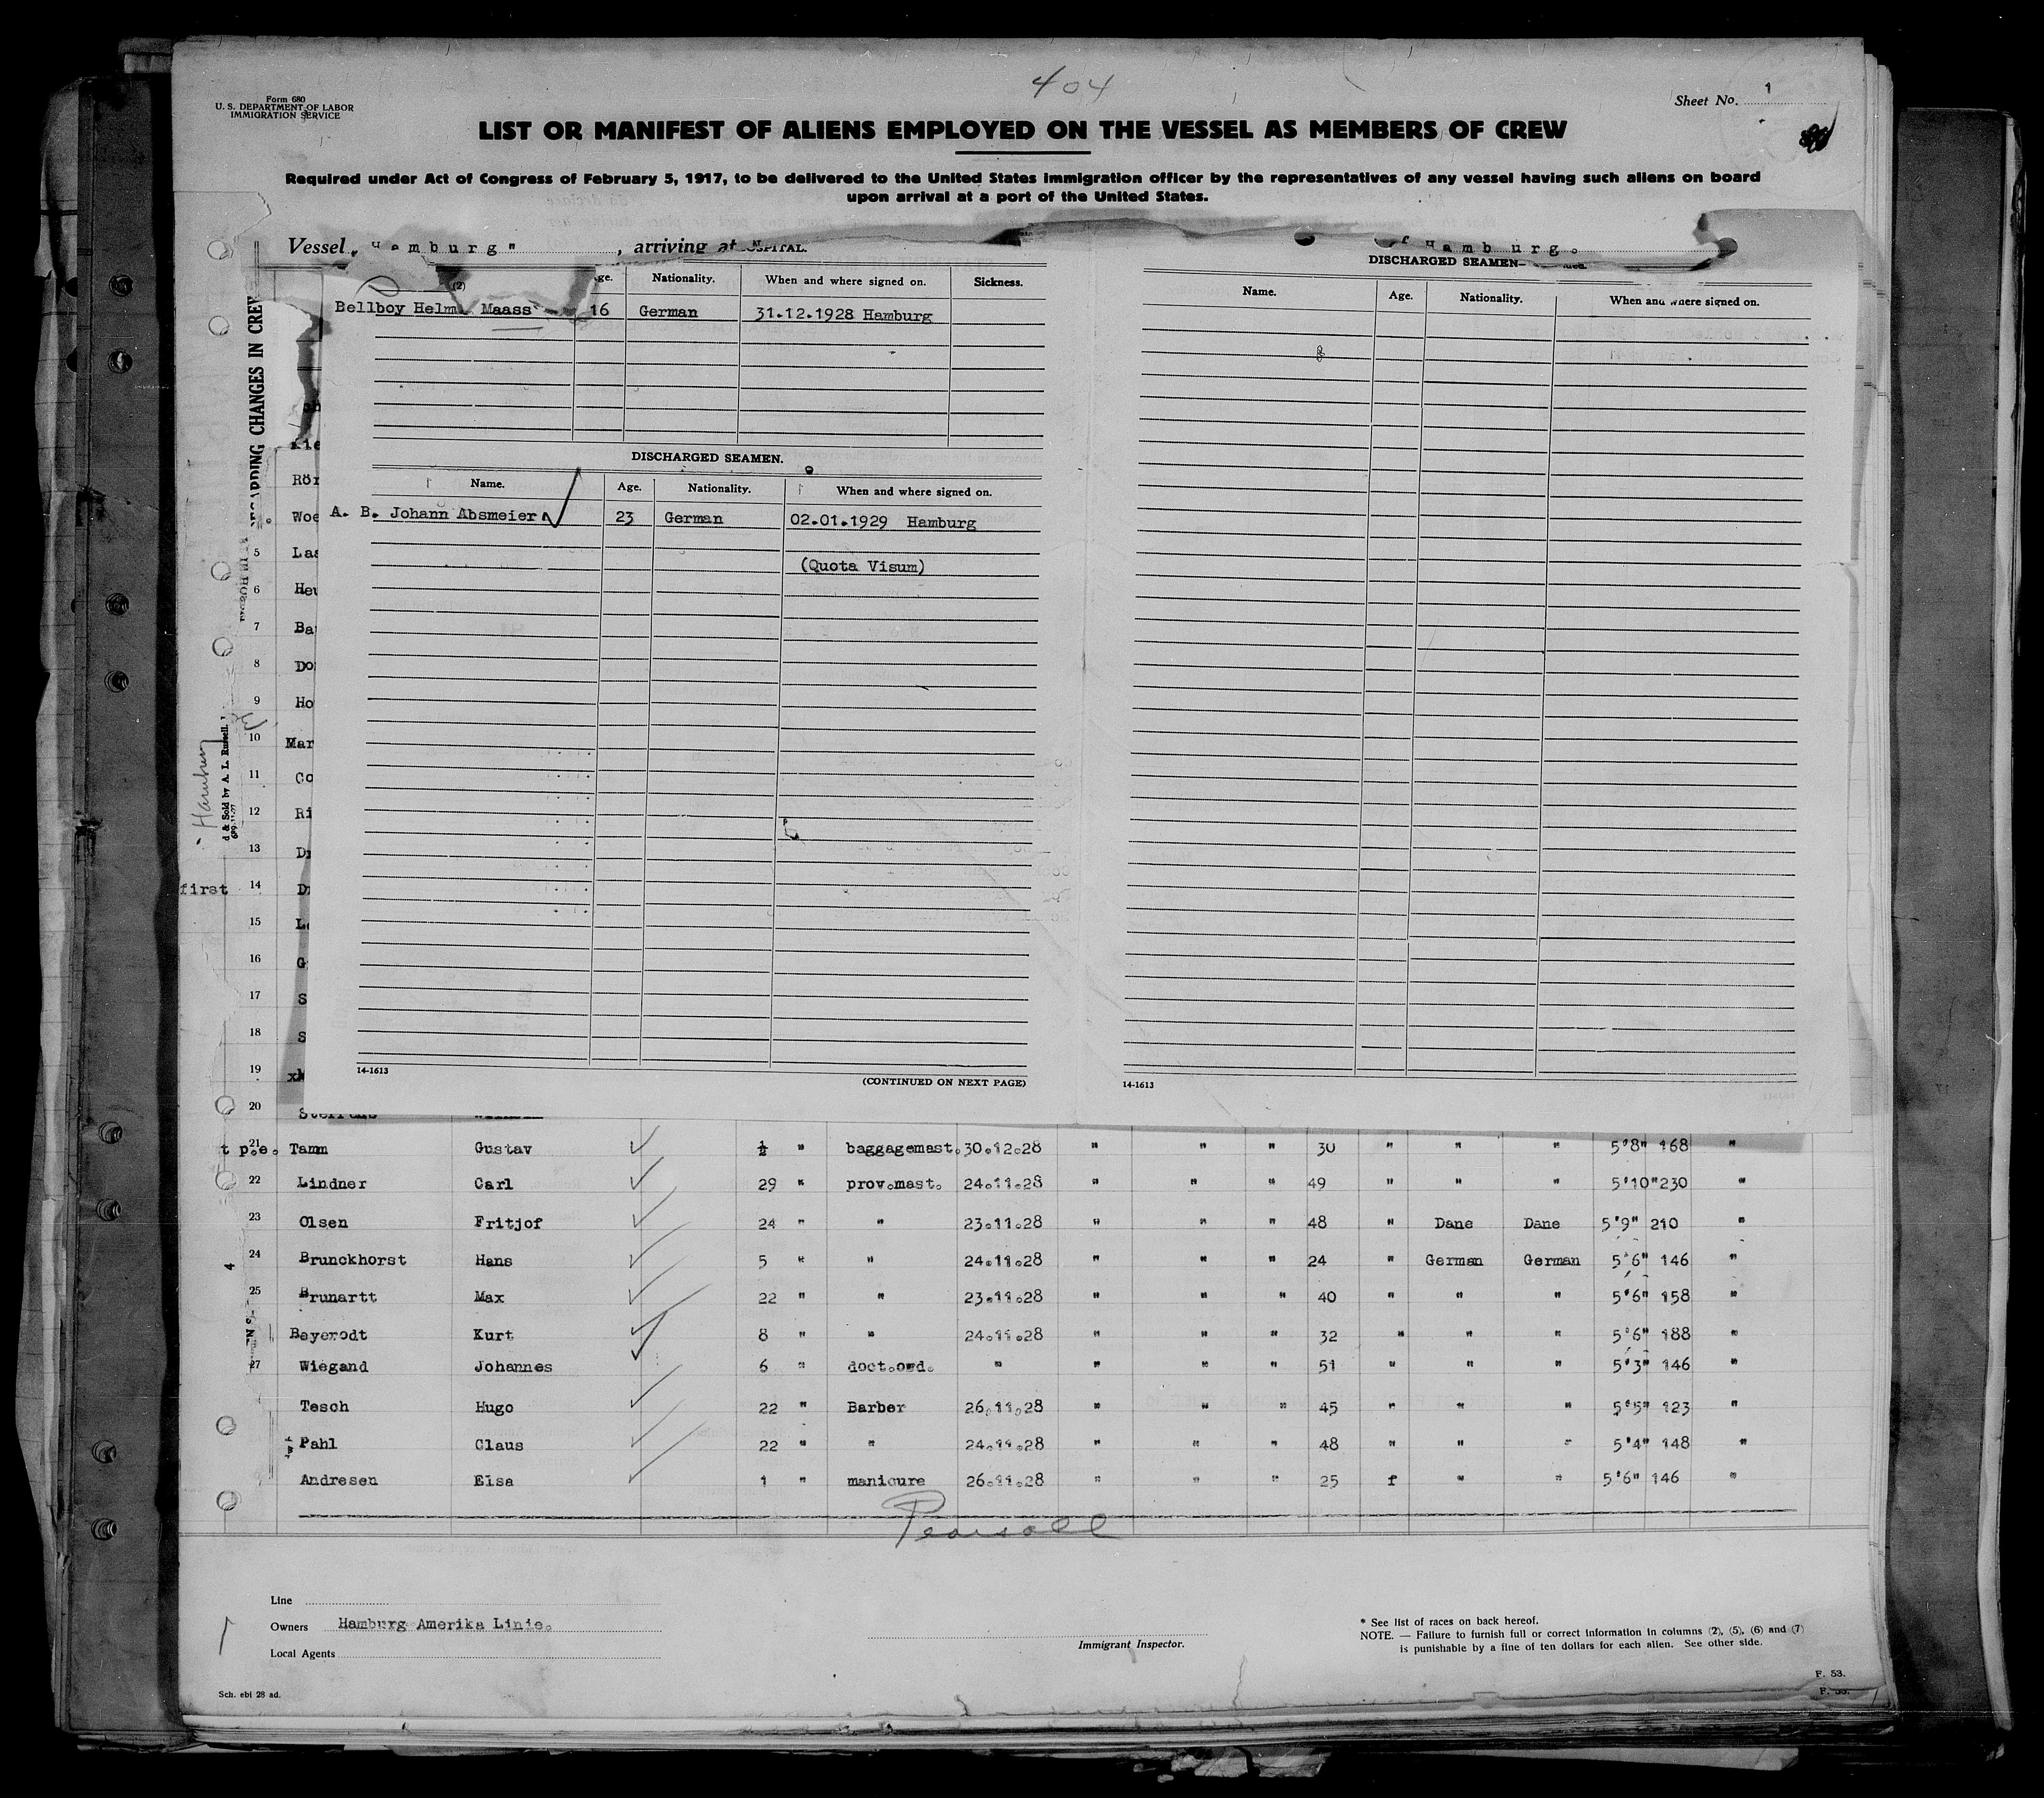 404
Form 680
U. S. DEPARTMENT OF LABOR
IMMIGRATION SERVICE
Sheet No. 1
LIST OR MANIFEST OF ALIENS EMPLOYED ON THE VESSEL AS MEMBERS OF CREW
Required under Act of Congress of February 5, 1917, to be delivered to the United States immigration officer by the representatives of any vessel having such aliens on board
upon arrival at a port of the United States.
Vessel "Hamburg", arriving at
Hamburg.
(2) Nationality. When and where signed on. Sickness.
Bellboy Helm. Maass 16 German 31.12.1928 Hamburg
DISCHARGED SEAMEN.
Name. Age. Nationality. When and where signed on.
A. B. Johann Absmeier 23 German 02.01.1929 Hamburg
(Quota Visum)
14-1613
(CONTINUED ON NEXT PAGE)
DISCHARGED SEAMEN—
Name. Age. Nationality. When and where signed on.
14-1613
CHANGES IN CREW
Hamburg
d & Sold by A. L. Russell,
Rör
Woe
5 Las
6 Heu
7 Ba
8 Do
9 Ho
10 Mar
11 Co
12 Ri
13 D
first 14 D
15 L
16 G
17 S
18 S
19 x
20
21 t p.e. Tamm Gustav ½ " baggagemast. 30.12.28 " " " 30 " " " 5'8" 168 "
22 Lindner Carl 29 " prov.mast. 24.11.28 " " " 49 " " " 5'10" 230 "
23 Olsen Fritjof 24 " " 23.11.28 " " " 48 " Dane Dane 5'9" 210 "
24 Brunckhorst Hans 5 " " 24.11.28 " " " 24 " German German 5'6" 146 "
25 Brunartt Max 22 " " 23.11.28 " " " 40 " " " 5'6" 158 "
Beyerodt Kurt 8 " " 24.11.28 " " " 32 " " " 5'6" 188 "
27 Wiegand Johannes 6 " doct.owd. " " " " 51 " " " 5'3" 146 "
Tesch Hugo 22 " Barber 26.11.28 " " " 45 " " " 5'5" 123 "
Pahl Claus 22 " " 24.11.28 " " " 48 " " " 5'4" 148 "
Andresen Elsa 1 " manicure 26.11.28 " " " 25 f " " 5'6" 146 "
4
Pearsall
Line
Owners Hamburg Amerika Linie.
Local Agents
Immigrant Inspector.
* See list of races on back hereof.
NOTE. — Failure to furnish full or correct information in columns (2), (5), (6) and (7)
is punishable by a fine of ten dollars for each alien. See other side.
Sch. ebi 28 ad.
F. 53.
F. 53.